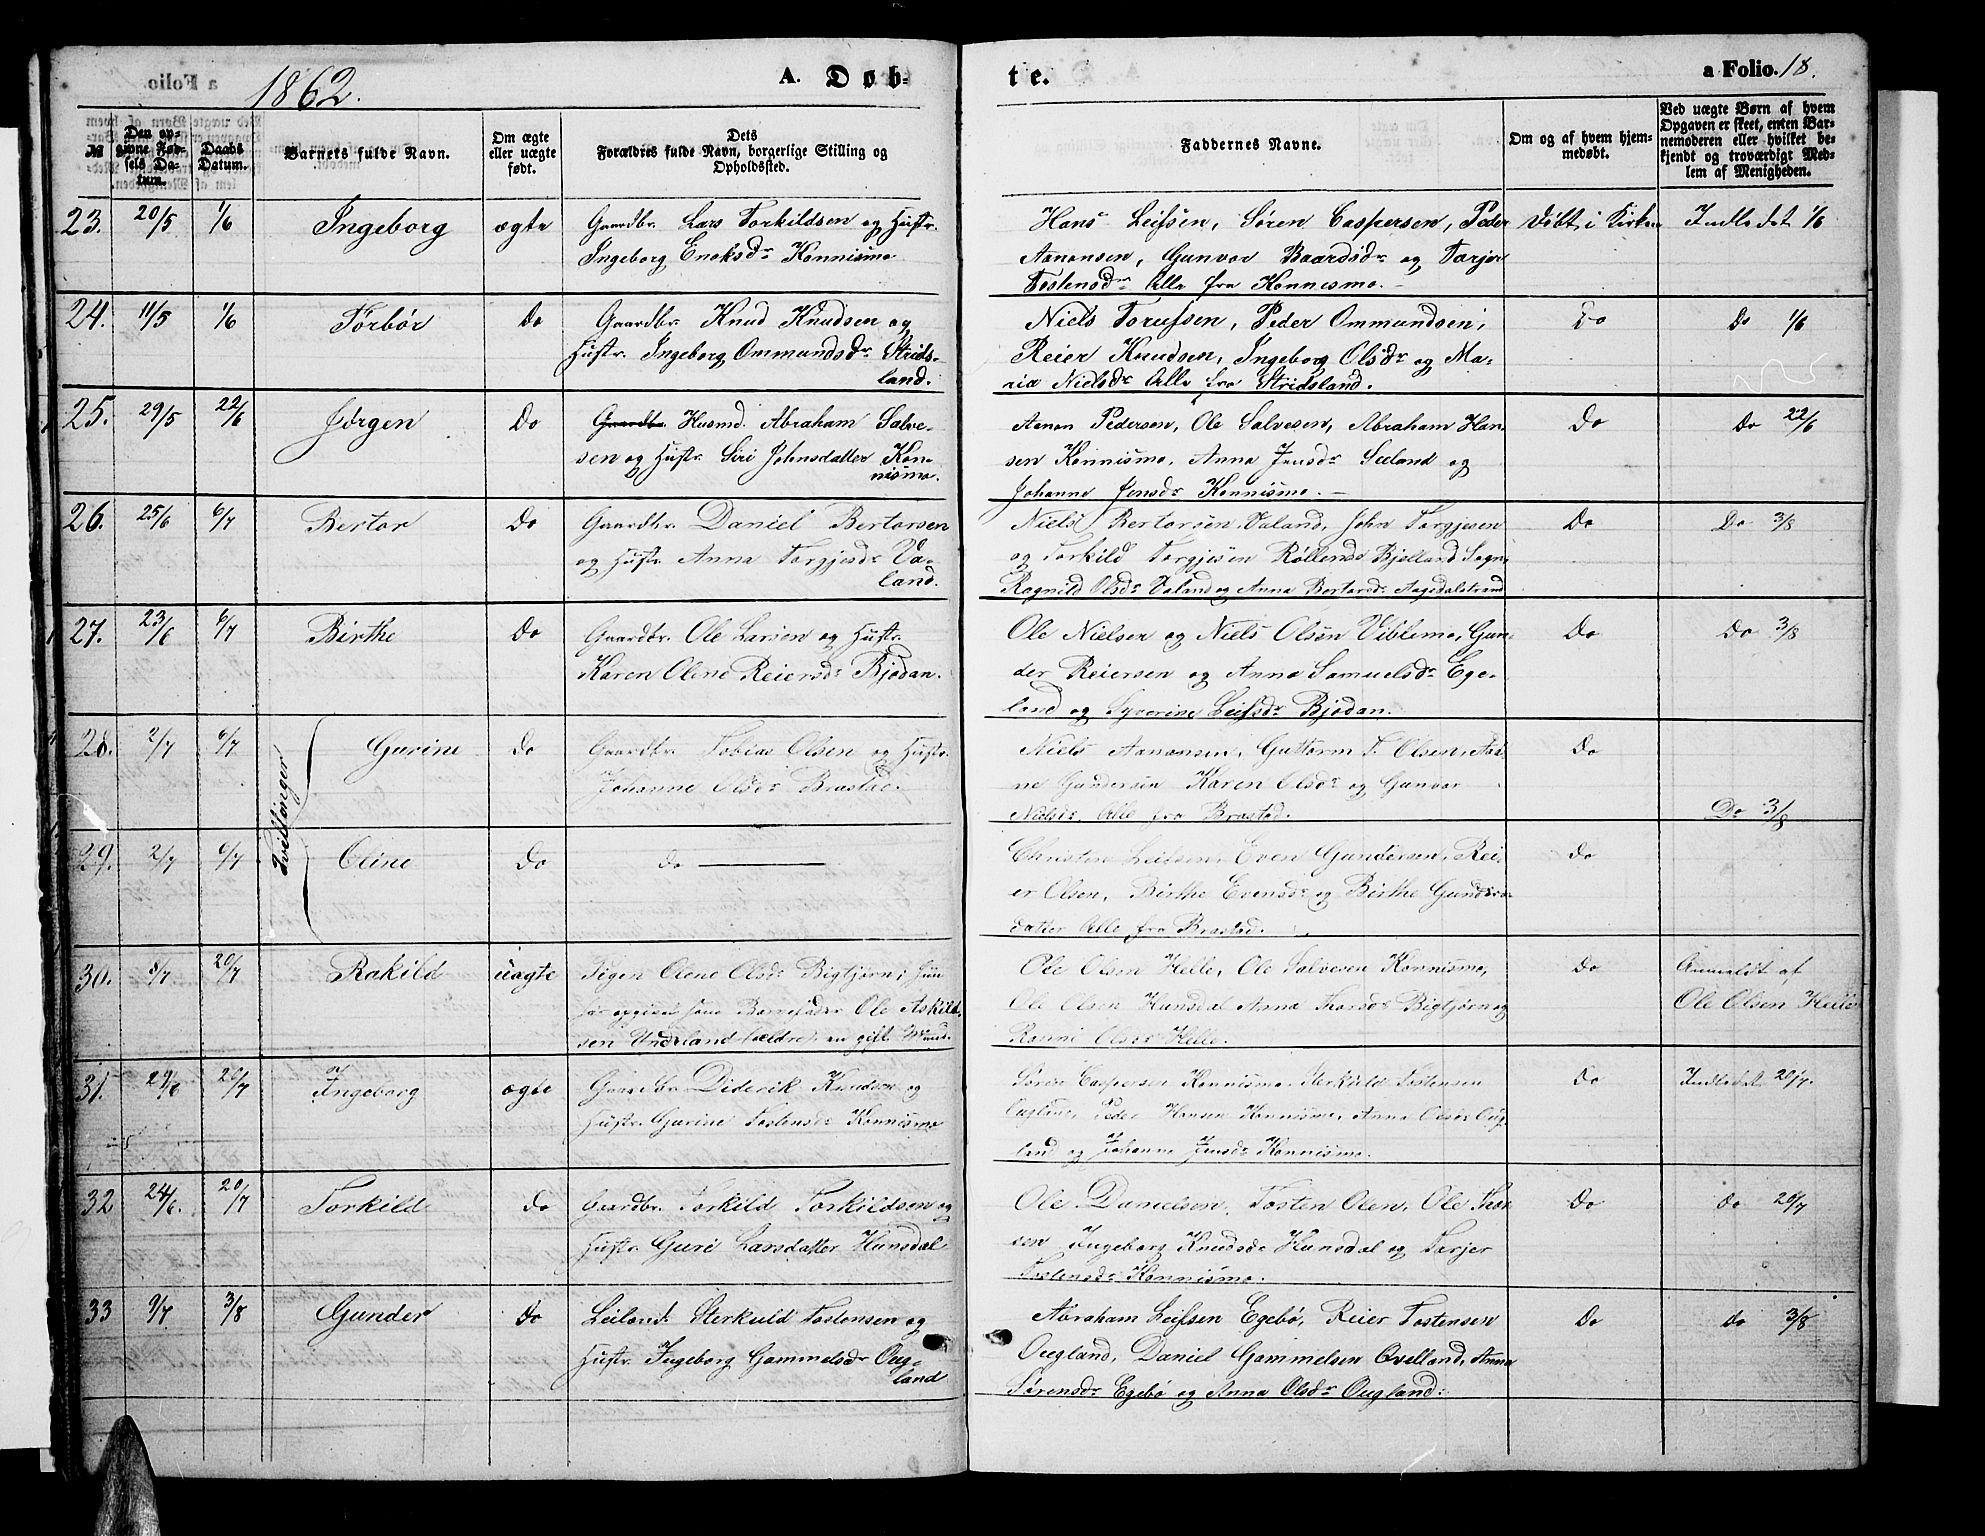 1862.
A. Døb-
te.
a Folio. 18.
№
Den op-
givne Fød-
sels Da-
tum.
Daabs
Datum.
Barnets fulde Navn.
Om ægte
eller uægte
født.
Dets
Forældres fulde Navn, borgerlige Stilling og
Opholdssted.
Faddernes Navne.
Om og af hvem hjem-
medøbt.
Ved uægte Børn af hvem
Opgaven er skeet, enten Bar-
nemoderen eller hvilket be-
kjendt og troværdigt Med-
lem af Menigheden.
23. 20/5 1/6 Ingeborg ægte
Gaardbr. Lars Torkildsen og Hustr.
Ingeborg Enoksdr Konnismo
Hans Leifsen, Søren Caspersen, Peder
Aanonsen, Gunvor Baardsdr og Tarjer
Tostensdr Alle fra Konnismo. –
Døbt i Kirken
Indledet 1/6
24. 11/5 1/6 Torbør Do
Gaardbr. Knud Knudsen og
Hustr. Ingeborg Ommundsdr Strids-
land.
Niels Torufsen, Peder Ommundsen,
Reier Knudsen, Ingeborg Olsdr og Ma-
ria Nielsdr Alle fra Stridsland.
Do
Do 1/6
25. 29/5 22/6 Jørgen Do
Gaardbr. Husmd. Abraham Salve-
sen og Hustr. Siri Johnsdatter Kon-
nismo.
Aanon Pedersen, Ole Salvesen, Abraham Han-
sen Konnismo, Anna Jensdr Seeland og
Johanne Jensdr Konnismo. –
Do
Do 22/6
26. 25/6 6/7 Bertor Do
Gaardbr. Daniel Bertorsen
og Hustr. Anna Torgjesdr Va-
land.
Niels Bertorsen Valand, John Torgjesen
og Torkild Torgjesen Røllend Bjelland Sogn,
Ragnild Olsdr Valand og Anna Bertorsdr Aagedalstrand
Do
Do 3/8
27. 23/6 6/7 Birthe Do
Gaardbr. Ole Larsen og Hustr.
Karen Oline Reiersdr Bjodan.
Ole Nielsen og Niels Olsen Viblemo, Gun-
der Reiersen og Anna Samuelsdr Ege-
land og Syverine Leifsdr Bjodan.
Do
Do 3/8
Tvillinger
28. 2/7 6/7 Gurine Do
Gaardbr. Tobias Olsen og Hustr.
Johanne Olsdr Brastad.
Niels Aanonsen, Guttorm T. Olsen, Aa-
ne Gundersen Karen Olsdr og Gunvor
Nielsdr. Alle fra Brastad.
Do
Do 3/8
29. 2/7 6/7 Oline Do
do
Christen Leifsen, Even Gundersen, Rei-
er Olsen, Birthe Evensdr og Birthe Gunders-
datter Alle fra Brastad.
Do
30. 8/7 20/7 Rakild uægte
Pigen Olene Olsdr Bigtjørn; hun
har opgivet som Barnefader Ole Askild-
sen Underland (ældre) en gift Mand.
Ole Olsen Helle, Ole Salvesen Konnismo,
Ole Olsen Hunsdal Anna Thorsdr Bigtjørn og
Ranni Olsdr Helle.
Do
Anmeldt af
Ole Olsen Helle
31. 29/6 20/7 Ingeborg ægte
Gaardbr Diderik Knudsen og
Hustr. Gurine Tostensdr Konnismo
Søren Caspersen Konnismo, Sterkuld Tostensen
Ougland, Peder Hansen Konnismo, Anna Olsdr Oug-
land og Johanne Jensdr Konnismo.
Do
Indledet 20/7.
32 24/6. 20/7 Torkild do
Gaardbr. Torkild Torkildsen og
Hustr. Guri Larsdatter Hunsdal
Ole Danielsen, Tosten Olen, Ole Thor-
sen Ingeborg Knudsdr Hunsdal og Tarjer
Tostensdr Konnismo.
Do
do 20/7
33 9/7 3/8 Gunder do
Leilænd. Sterkuld Tostensen og
Hustr. Ingeborg Gammelsdr Oug-
land
Abraham Leifsen Egebø, Reier Tostensen
Ougland, Daniel Gammelsen Qvelland, Anna
Sørensdr Egebø og Anna Olsdr Ougland.
Do
do 3/8